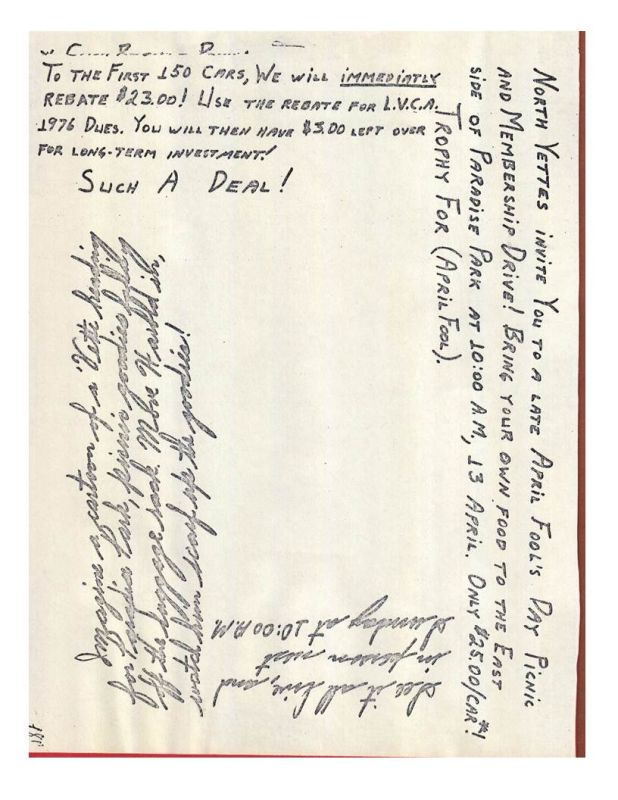 TO THE FIRST 150 CARS, WE WILL IMMEDIATLY
REBATE $23.00! USE THE REBATE FOR L.V.C.A.
1976 DUES. YOU WILL THEN HAVE $3.00 LEFT OVER
FOR LONG-TERM INVESTMENT!
SUCH A DEAL!
NORTH VETTES INVITE YOU TO A LATE APRIL FOOL'S DAY PICNIC
AND MEMBERSHIP DRIVE! BRING YOUR OWN FOOD TO THE EAST
SIDE OF PARADISE PARK AT 10:00 A.M, 13 APRIL. ONLY $25.00/CAR*!
TROPHY FOR (APRIL FOOL).
Imagine a cartoon of a Vette
of Paradise Park, goodies
off the a rock.
watch him scarf up the goodies!
See it all live, and
in person next
Sunday at 10:00 A.M.